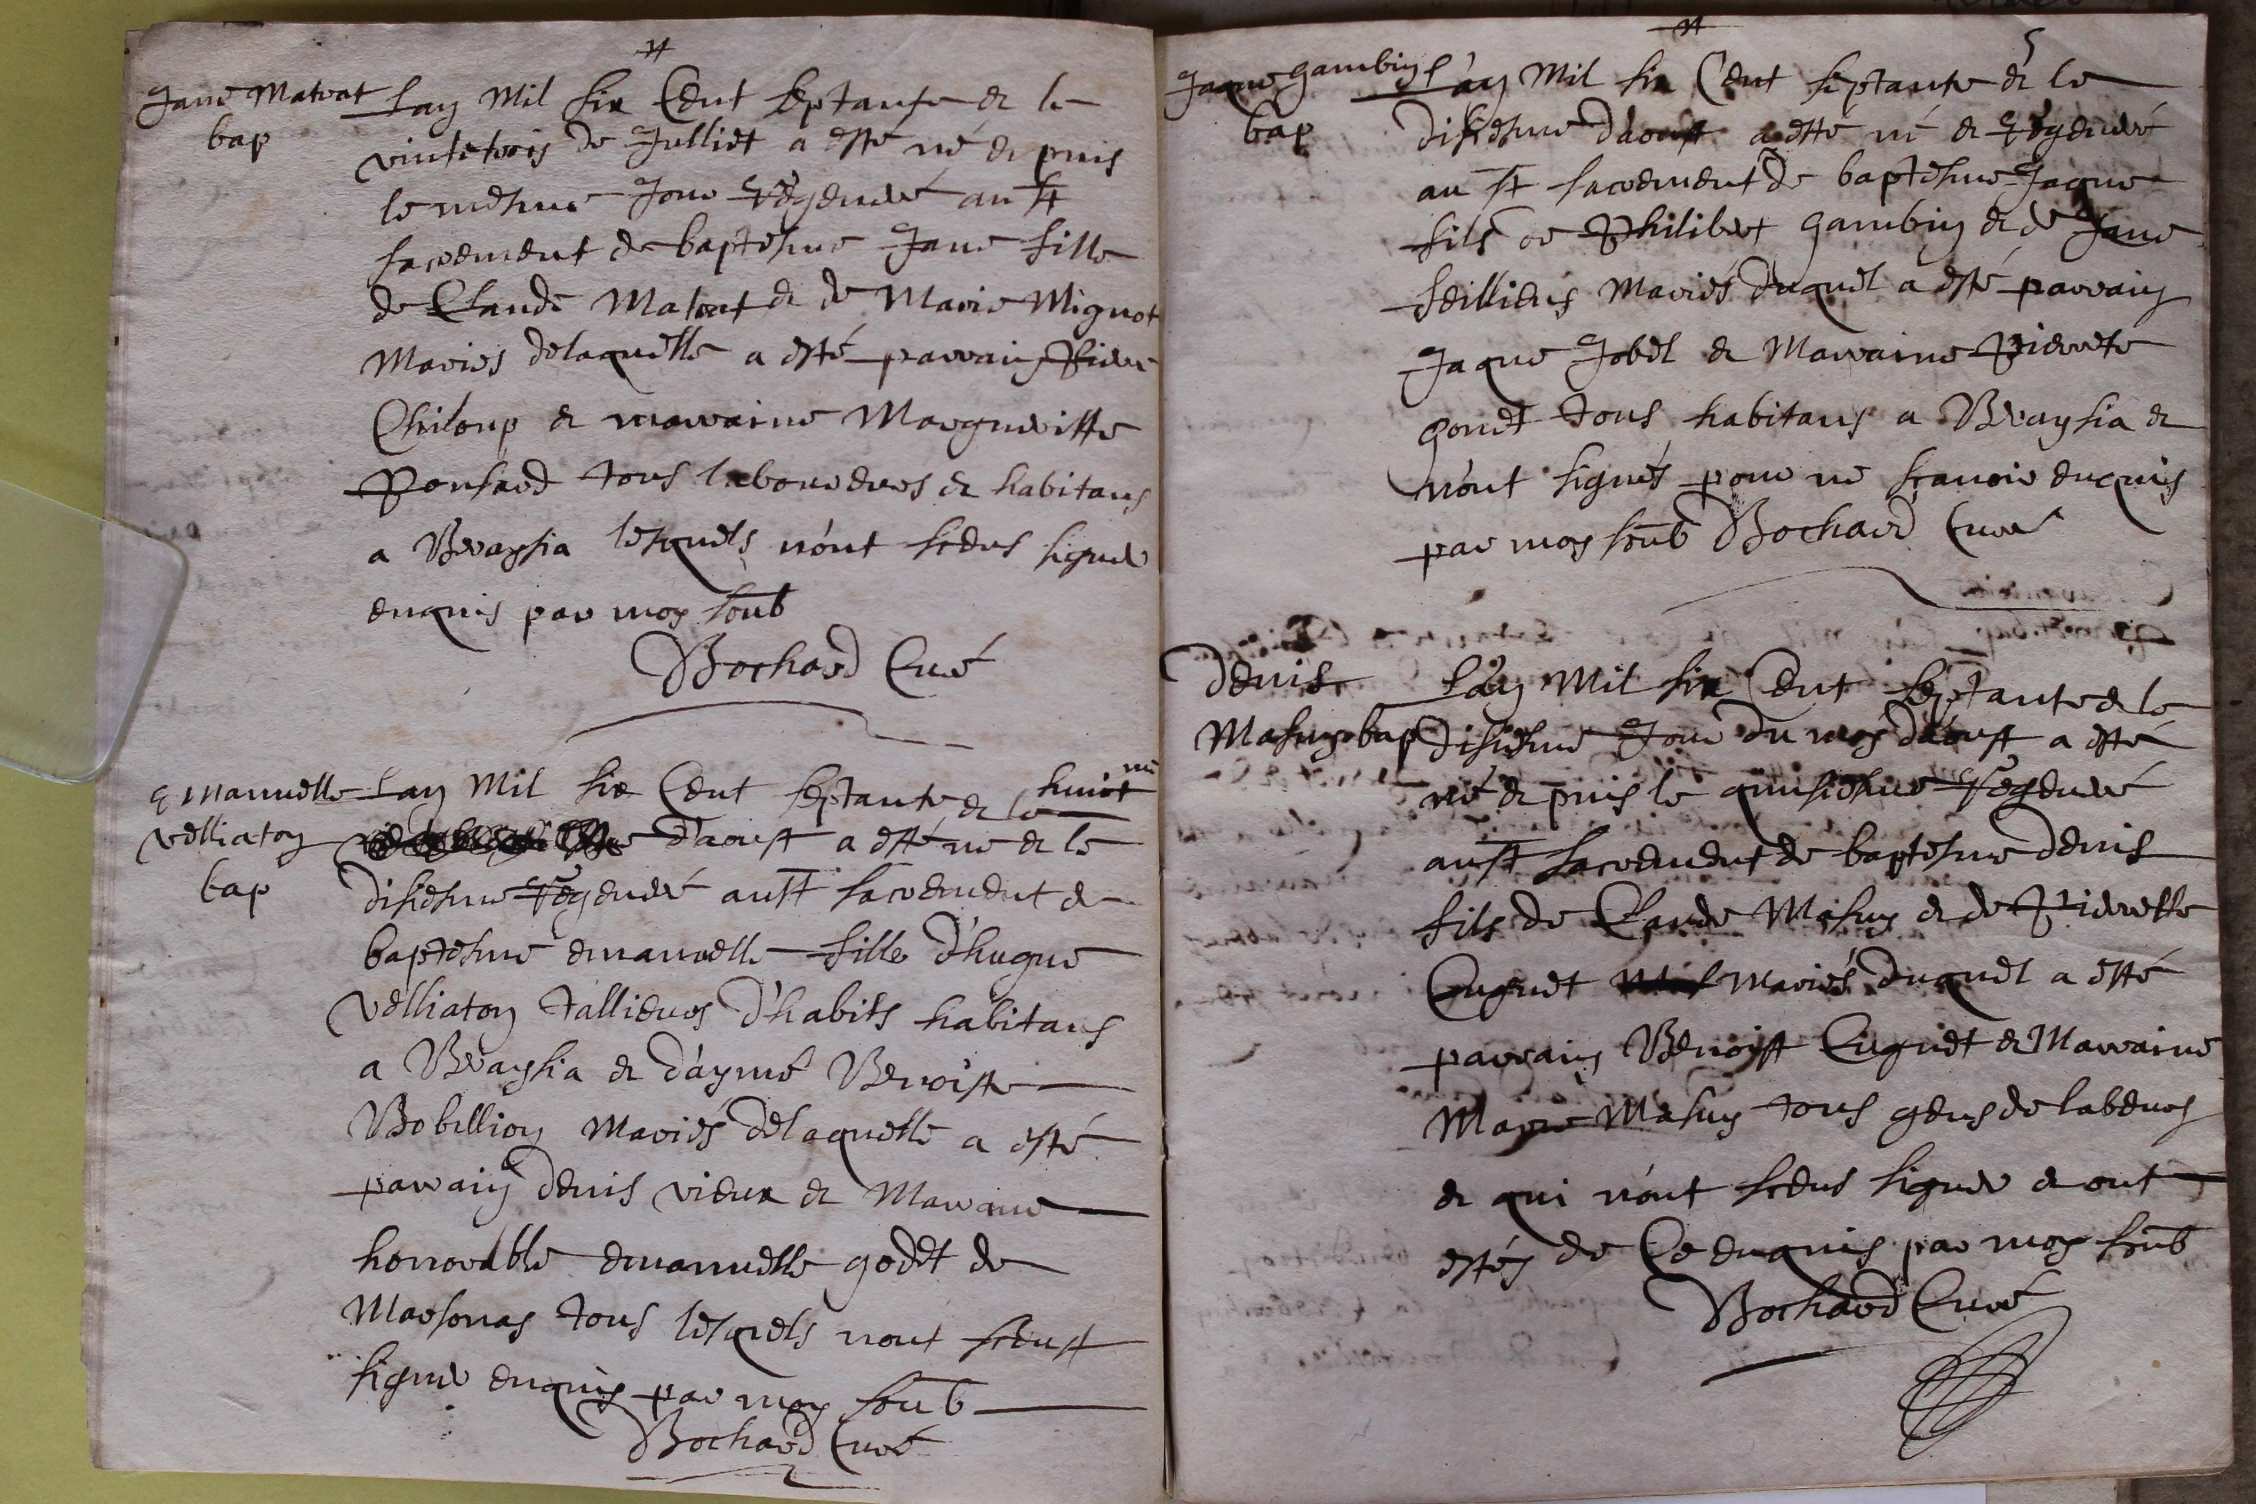 Jane Matrat
bap
Lan Mil six Cent septante et le
vintetrois de Julliet a esté né et puis
le mesme Jour régénéré au St
sacrement de baptesme Jane fille
de Claude Matrat et de Marie Mignot
Mariés delaquelle a esté parrain Pierre
Chiloup et marraine Margueritte
Ponsard tous laboureurs et habitans
a Breysia lesquels n'ont sceus signer
enquis par moy soub
Bochard Curé
Emanuelle
velliaton
bap
Lan Mil six Cent septante et le huict
d'aoust a esté né et le
disiesme régénéré au St sacrement de
baptesme emanuelle fille d'hugue
velliaton tallieurs d'habits habitans
a Breysia et d'aymé Benoiste
Bobillion Mariés delaquelle a esté
parrain denis vieux et Maraine
honorable emanuelle godet de
Marsonas tous lesquels nont sceust
signer enquis par moy soub
Bochard Curé
5
Jaque Gambin
bap
L'an Mil six Cent septante et le
disiesme d'aoust a esté né et régénéré
au St sacrement de baptesme Jaque
fils de Philibert Gambin et de Jane
Seilliens Mariés duquel a esté parrain
Jaque Jobel et Marraine Pierrete
gonet tous habitans a Breysia et
n'ont signés pour ne scavoir enquis
par moy soub Bochard Curé
Denis
Masuy bap
L'an Mil six Cent septante et le
disiesme Jour du moy d'aoust a esté
né et puis le quinsiesme régénéré
au St sacrement de baptesme denis
fils de Claude Masuy et de Pierrette
Cuguet Mariés duquel a esté
parrain Benoist Cuguet et Marraine
Marie Masuy tous gens de labeurs
et qui n'ont sceus signer et ont
estés de Ce enquis par moy soub
Bochard Curé